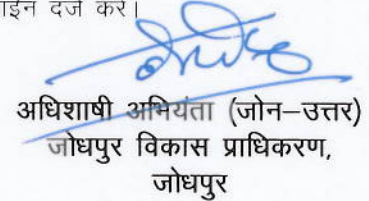 ाईन दर्ज करें।
अधिशाषी अभियंता (जोन–उत्तर)
जोधपुर विकास प्राधिकरण,
जोधपुर